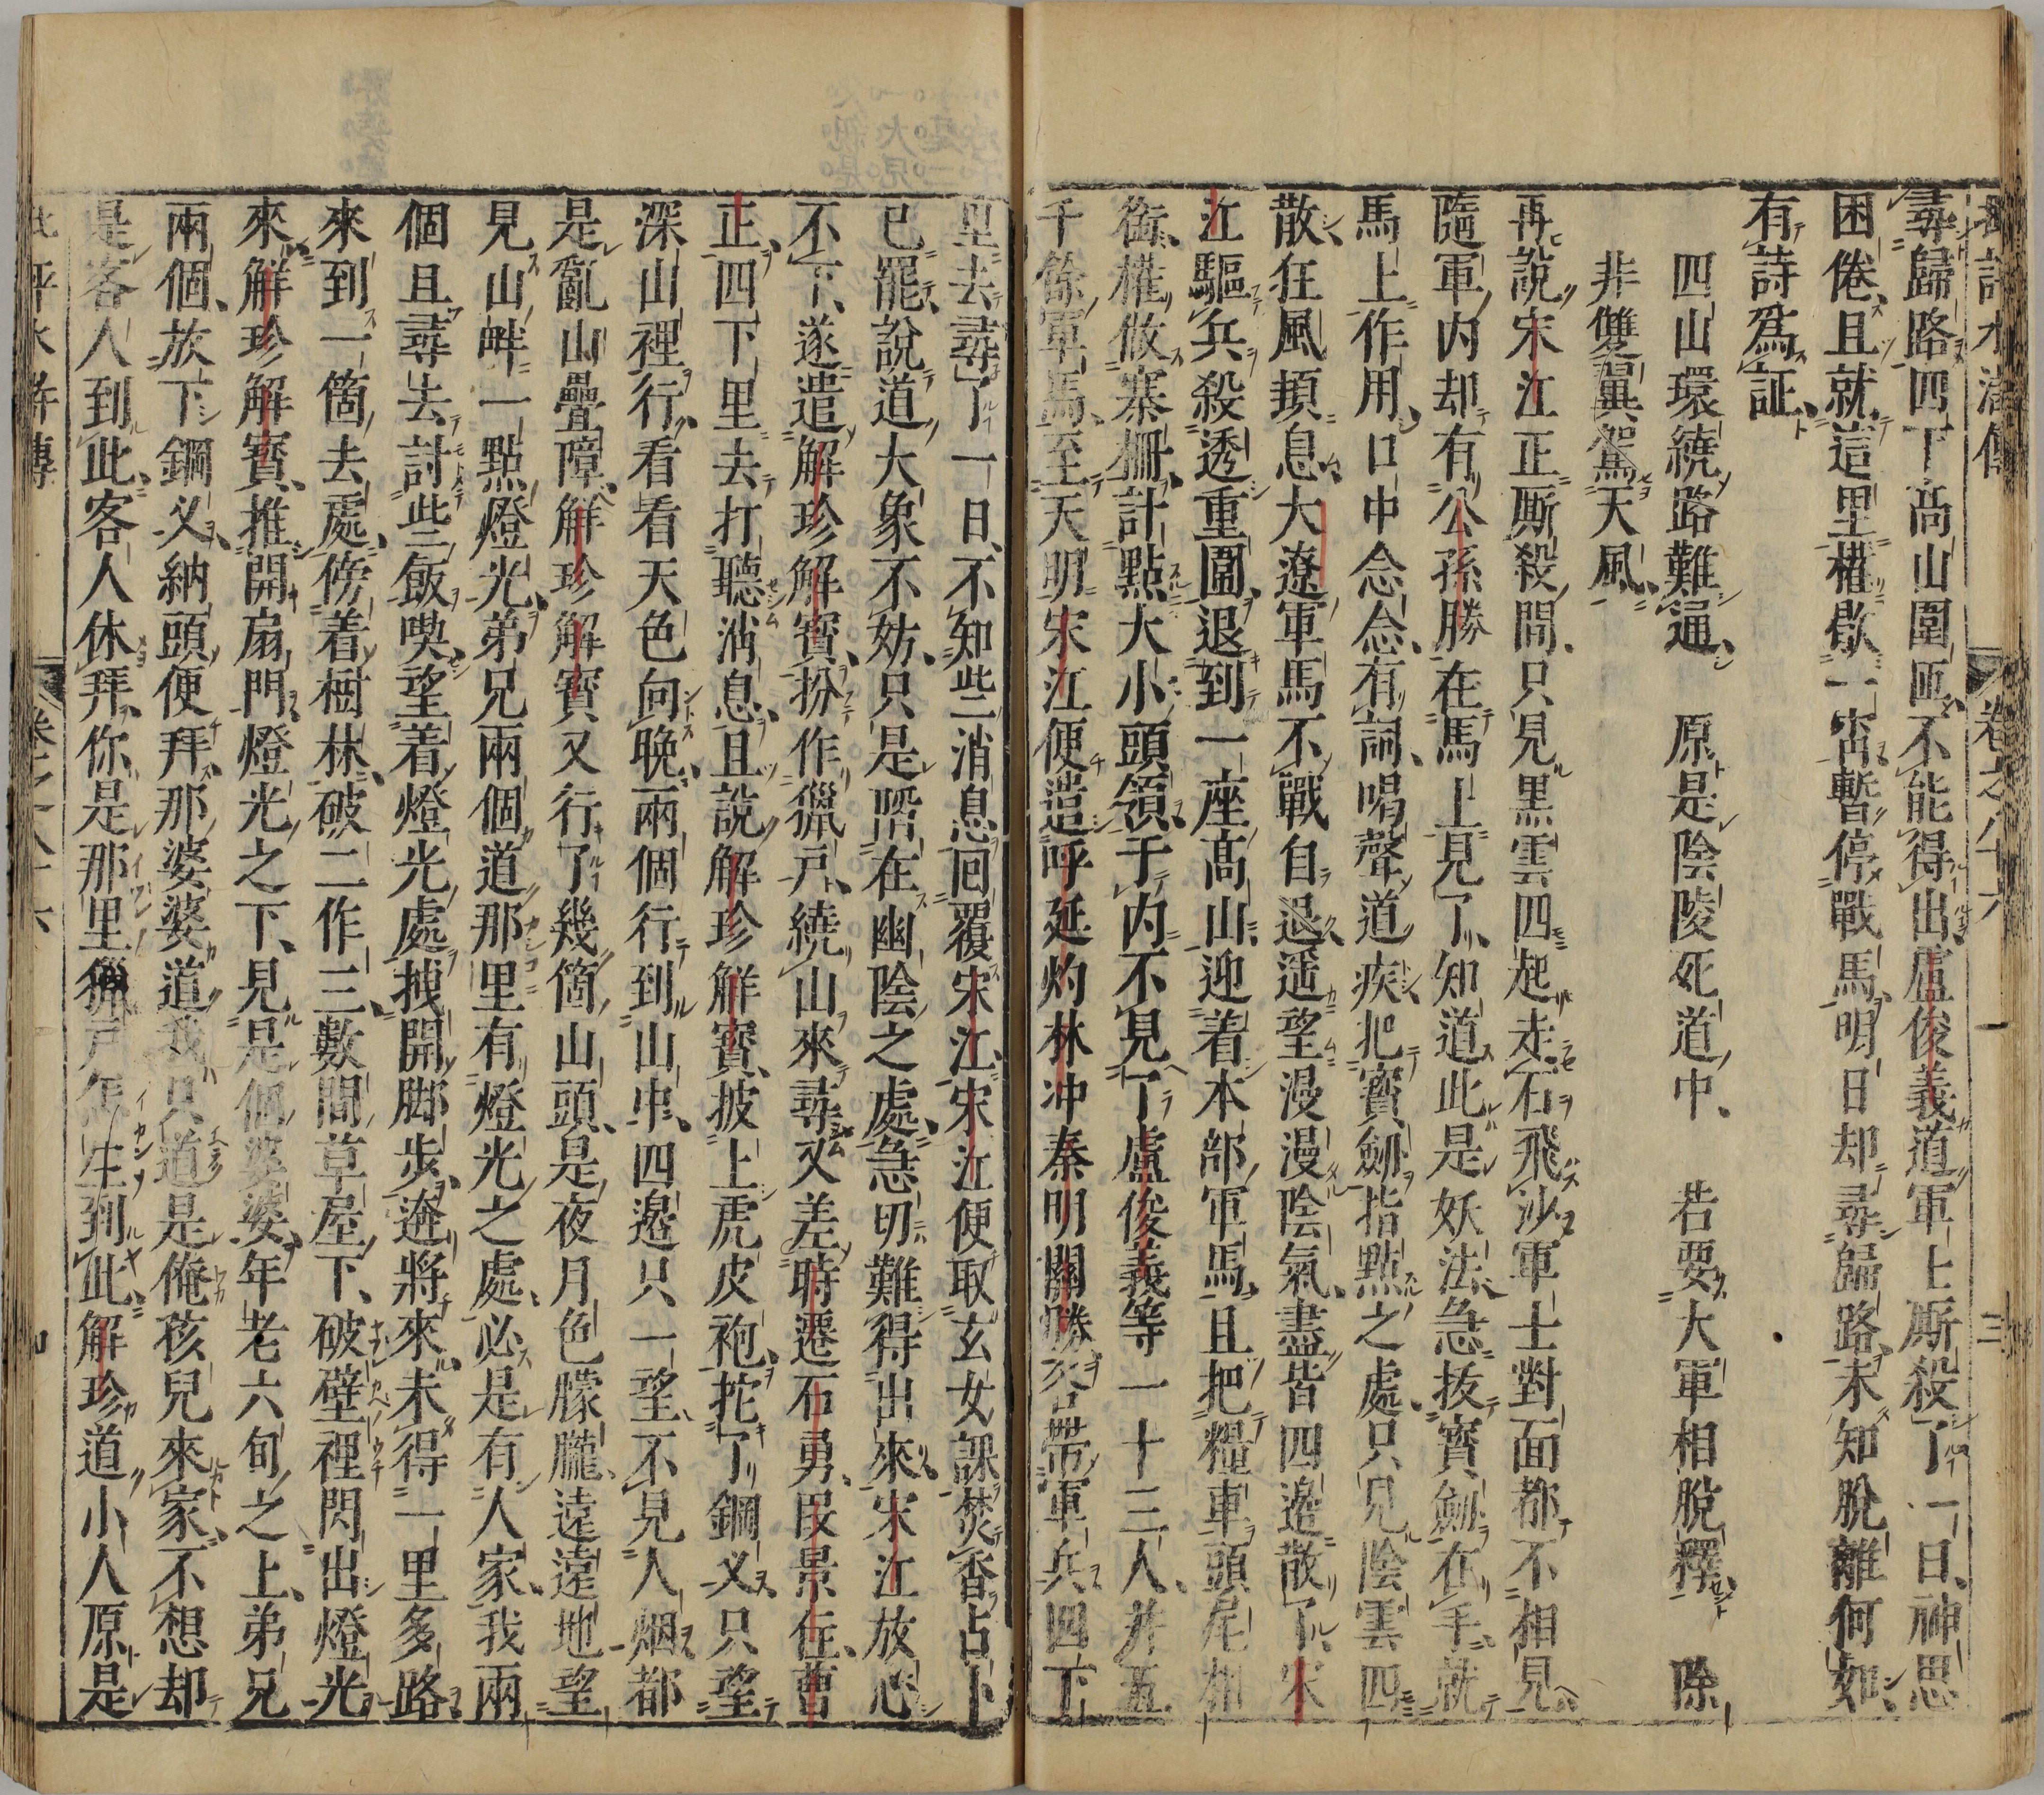 尋歸路四下高山圍匝不能得出盧俊義道軍上厮殺了一日神思
困倦且就這里權歇一宵暫停戰馬明日却尋歸路未知脫離何如
有詩爲証
四山環繞路難通　原是陰陵死道中　若要大軍相脫釋　除
非雙翼駕天風
再說宋江正厮殺間只見黑雲四起走石飛沙軍士對面都不相見
隨軍内却有公孫勝在馬上見了知道此是妖法急拔寶劒在手就
馬上作用口中念念有詞喝聲道疾把寶劒指點之處只見陰雲四
散狂風頓息大遼軍馬不戰自退遥望漫漫陰氣盡皆四邉散了宋
江驅兵殺透重圍退到一座高山迎着本部軍馬且把糧車頭尾相
銜權做寨柵計點大小頭領于内不見了盧俊義等一十三人并五
千餘軍馬至天明宋江便遣呼延灼林冲秦明關勝各帶軍兵四下
里去尋了一日不知些消息回覆宋江宋江便取玄女課焚香占卜
已罷說道大象不妨只是陷在幽陰之處急切難得出來宋江放心
不下遂遣解珍解寶扮作獵戸繞山來尋又差時遷石勇段景住曹
正四下里去打聽消息且說解珍解寶披上虎皮袍拕了鋼叉只望
深山裡行看看天色向晚兩個行到山中四邉只一望不見人烟都
是亂山疊障解珍解寶又行了幾箇山頭是夜月色朦朧遠遠地望
見山畔一點燈光弟兄兩個道那里有燈光之處必是有人家我兩
個且尋去討些飯喫望着燈光處拽開脚步迯將來未得一里多路
來到一箇去處傍着樹林破二作三數間草屋下破壁裡閃出燈光
來解珍解寶推開扇門燈光之下見是個婆婆年老六旬之上弟兄
兩個放下鋼叉納頭便拜那婆婆道我只道是俺孩兒來家不想却
是客人到此客人休拜你是那里獵戸怎生到此解珍道小人原是
卷之八十六
三